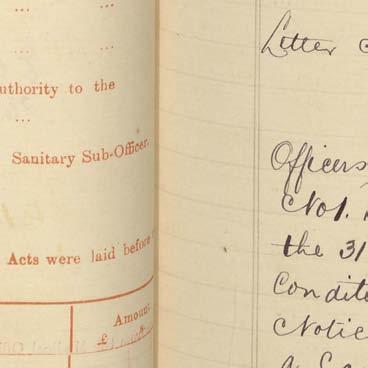 ... ...
... ...
uthority to the
...
Sanitary Sub-Officer.
Acts were laid before
Amount
£
Letter
Officers
No1.
the 31
Condite
Notic